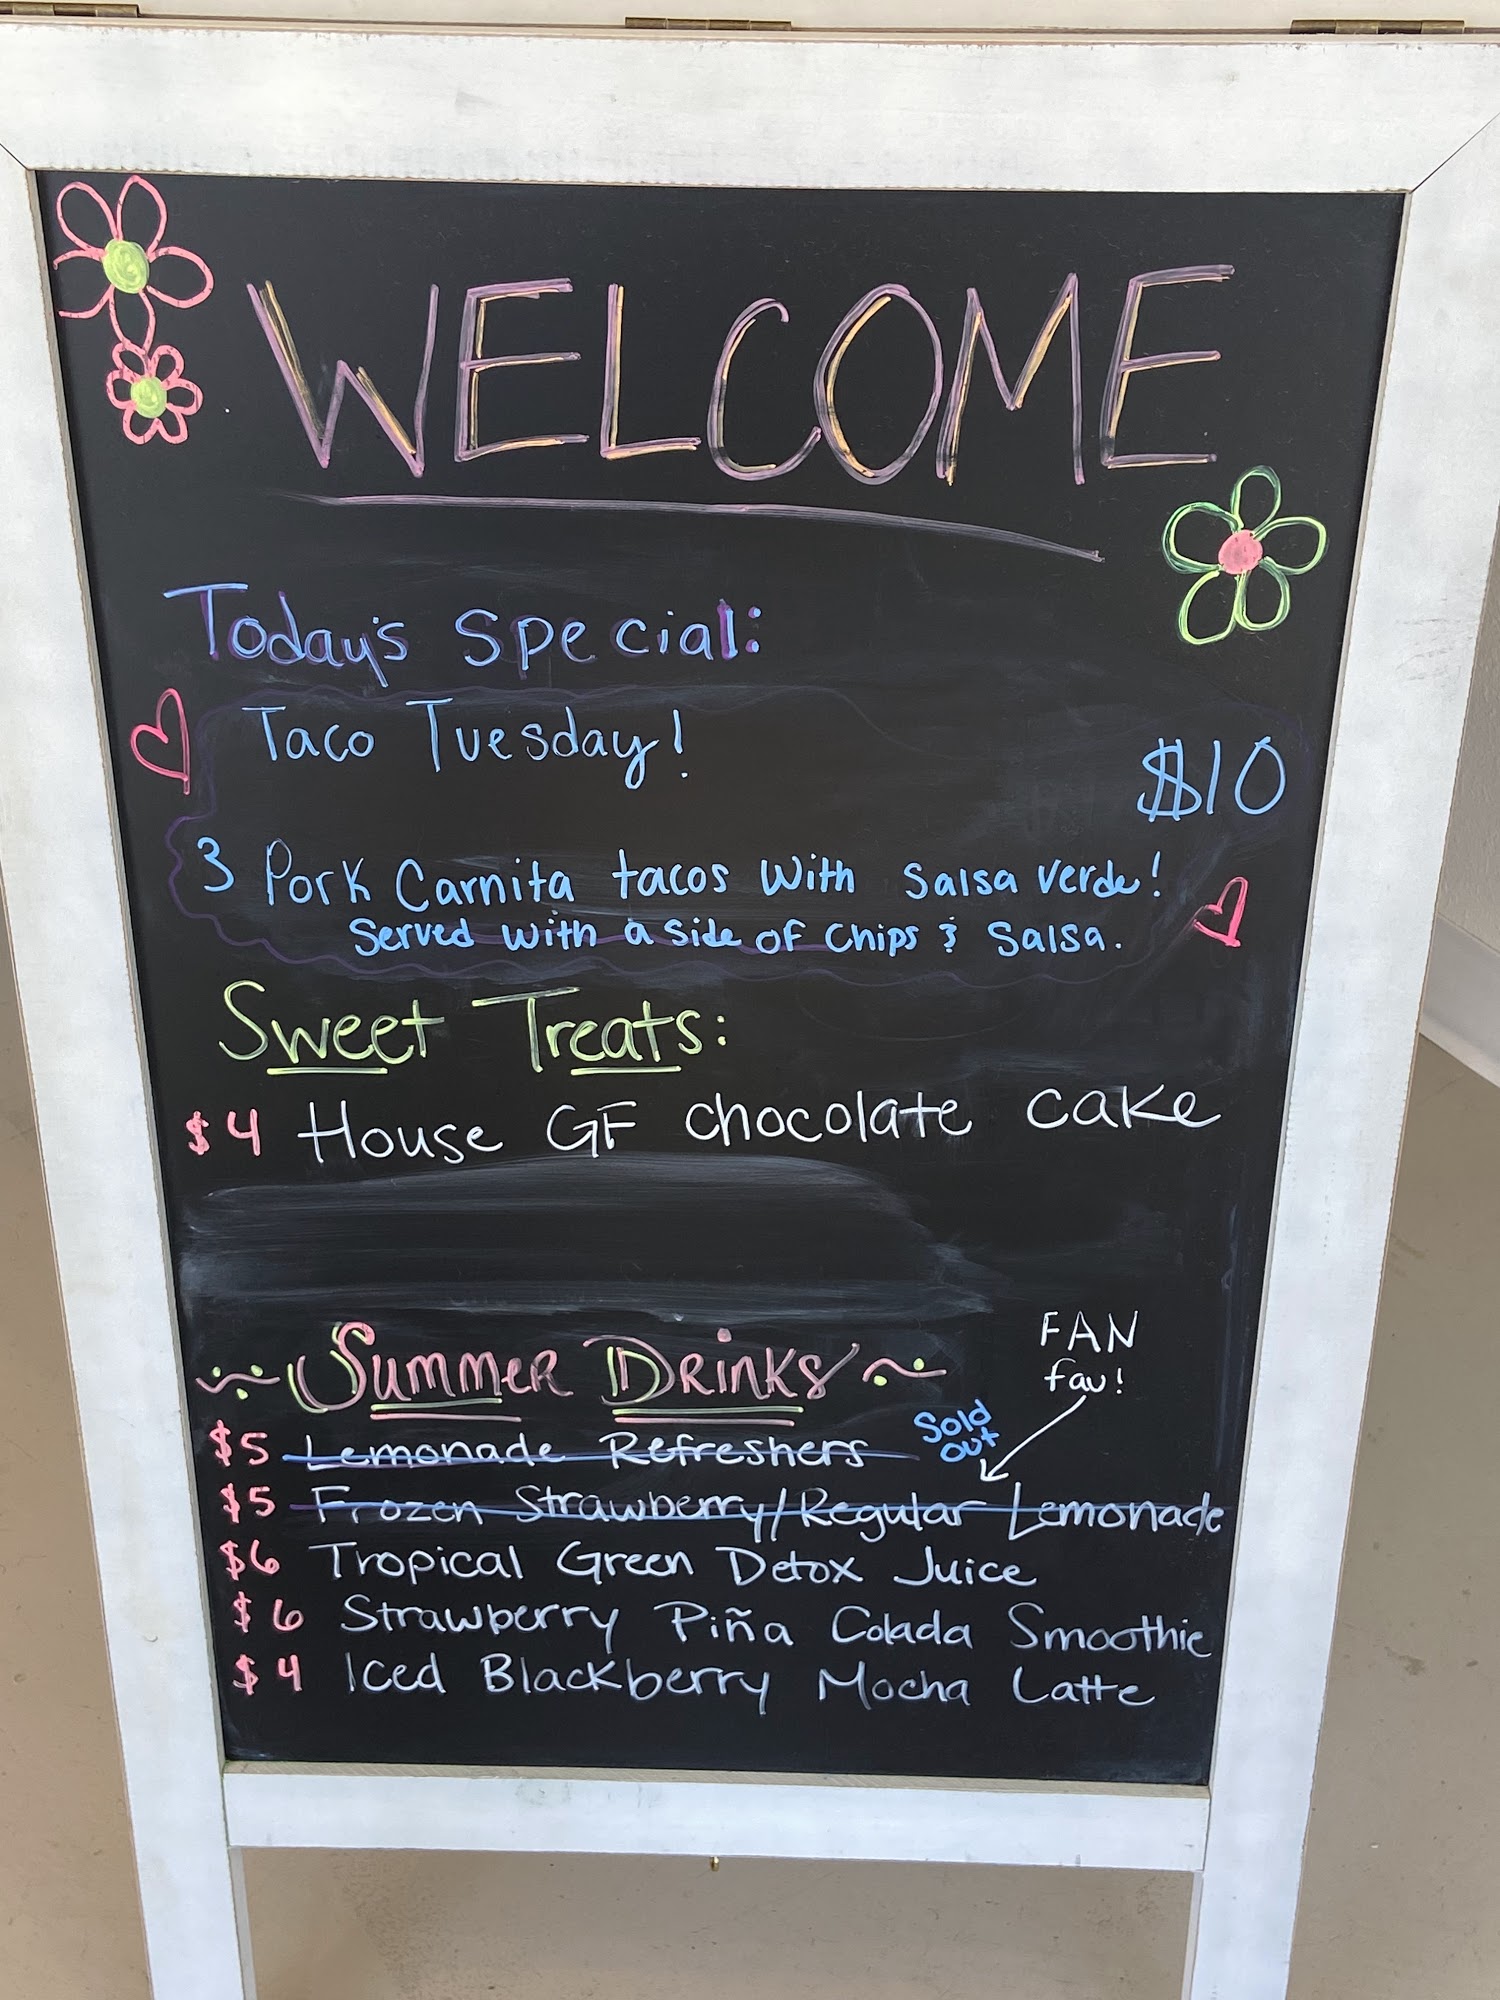 WELCOME
Today's Special:
Taco Tuesday!
$10
3 Pork Carnita tacos with salsa verde!
Served with a side of chips & Salsa.
Sweet Treats:
$4 House GF chocolate cake
FAN
fav!
Summer Drinks
Sold
out
$5 Lemonade Refreshers
$5 Frozen Strawberry/Regular Lemonade
$6 Tropical Green Detox Juice
$6 Strawberry Piña Colada Smoothie
$4 Iced Blackberry Mocha Latte